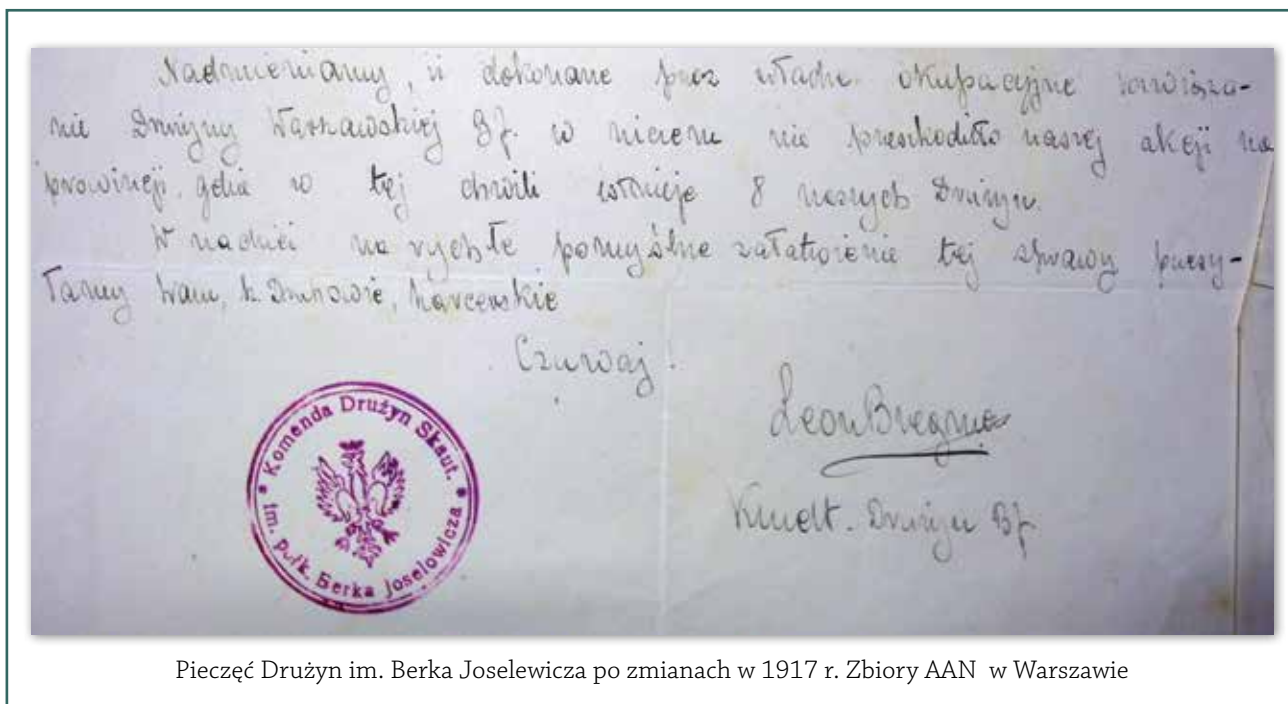 Nadmieniamy, iż dokonane przez władze okupacyjne rozwiąza-
nie Drużyny Warszawskiej BJ. w niczem nie przeszkodziło naszej akcji na
prowincji, gdzie w tej chwili istnieje 8 naszych Drużyn.
W nadziei na rychłe pomyślne załatwienie tej sprawy przesy-
łamy Wam, k. Druhowie, harcerskie
Czuwaj.
Leon
Kmdt. Drużyn BJ
* Komenda Drużyn Skaut. *
im. pułk. Berka Joselowicza
Pieczęć Drużyn im. Berka Joselewicza po zmianach w 1917 r. Zbiory AAN w Warszawie